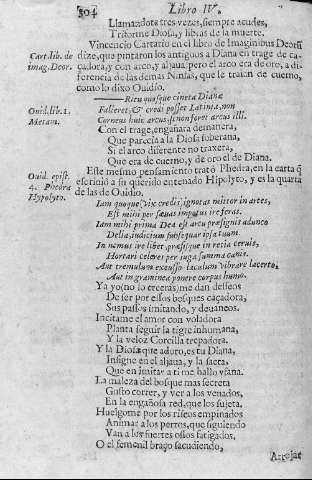 304
Libro IV.
Llamandote tres vezes, siempre acudes,
Triforme Diosa, y libras de la muerte.
Cart. lib. de
imag. Deor.
Vincencio Cartario en el libro de Imaginibus Deorũ
dize, que pintaron los antiguos a Diana en trage de ca-
çadora, y con arco, y aljaua, pero el arco era de oro, a di-
ferencia de las demas Ninfas, que le traian de cuerno,
como lo dixo Ouidio.
Ouid. lib. 1.
Metam.
Ritu quoque cincta Dianæ
Falleret, & credi posset Latonia, non
Corneus huic arcus, si non foret arcus illi.
Con el trage, engañara de manera,
Que parecia la Diosa soberana,
Si el arco diferente no traxera,
Que era de cuerno, y de oro el de Diana.
Ouid. epist.
4. Phedra
Hypolyto.
Este mesmo pensamiento trató Phedra, en la carta q̃
escriuió a su querido entenado Hipolyto, y es la quarta
de las de Ouidio.
Iam quoque (vix credis) ignotas mittor in artes,
Est mihi per sæuas impetus ire feras.
Iam mihi prima Dea est arcu præsignis adunco
Delia, iudicium subsequar ipsa tuum.
In nemus ire libet, præssisque in retia ceruis,
Hortari celeres per iuga summa canes.
Aut tremulum excusso iaculum vibrare lacerto,
Aut in graminea ponere corpus humo.
Ya yo (no lo creerás) me dan desseos
De ser por essos bosques caçadora,
Sus passos imitando, y deuaneos.
Incitame el amor con voladora
Planta seguir la tigre inhumana,
Y la veloz Corcilla trepadora.
Y la Diosa que adoro, es tu Diana,
Insigne en el aljaua, y la saeta,
Que en imitar a ti me hallo vfana.
La maleza del bosque mas secreta
Gusto correr, y ver a los venados,
En la engañosa red, que los sujeta.
Huelgome por los riscos empinados
Animar a los perros, que siguiendo
Van a los fuertes ossos fatigados,
O el femenil braço sacudiendo,
Arrojar